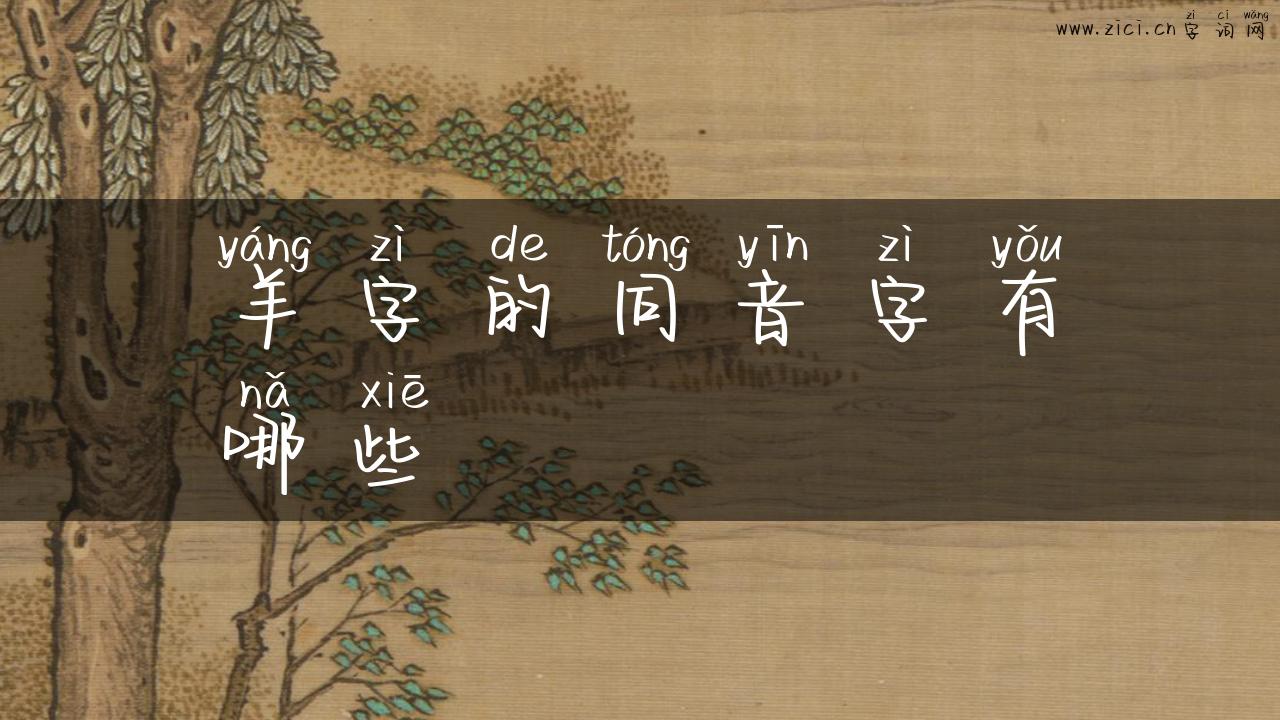 zì cí wǎng
www.zici.cn 字词网
yáng zì de tóng yīn zì yǒu
羊字的同音字有
nǎ xiē
哪些